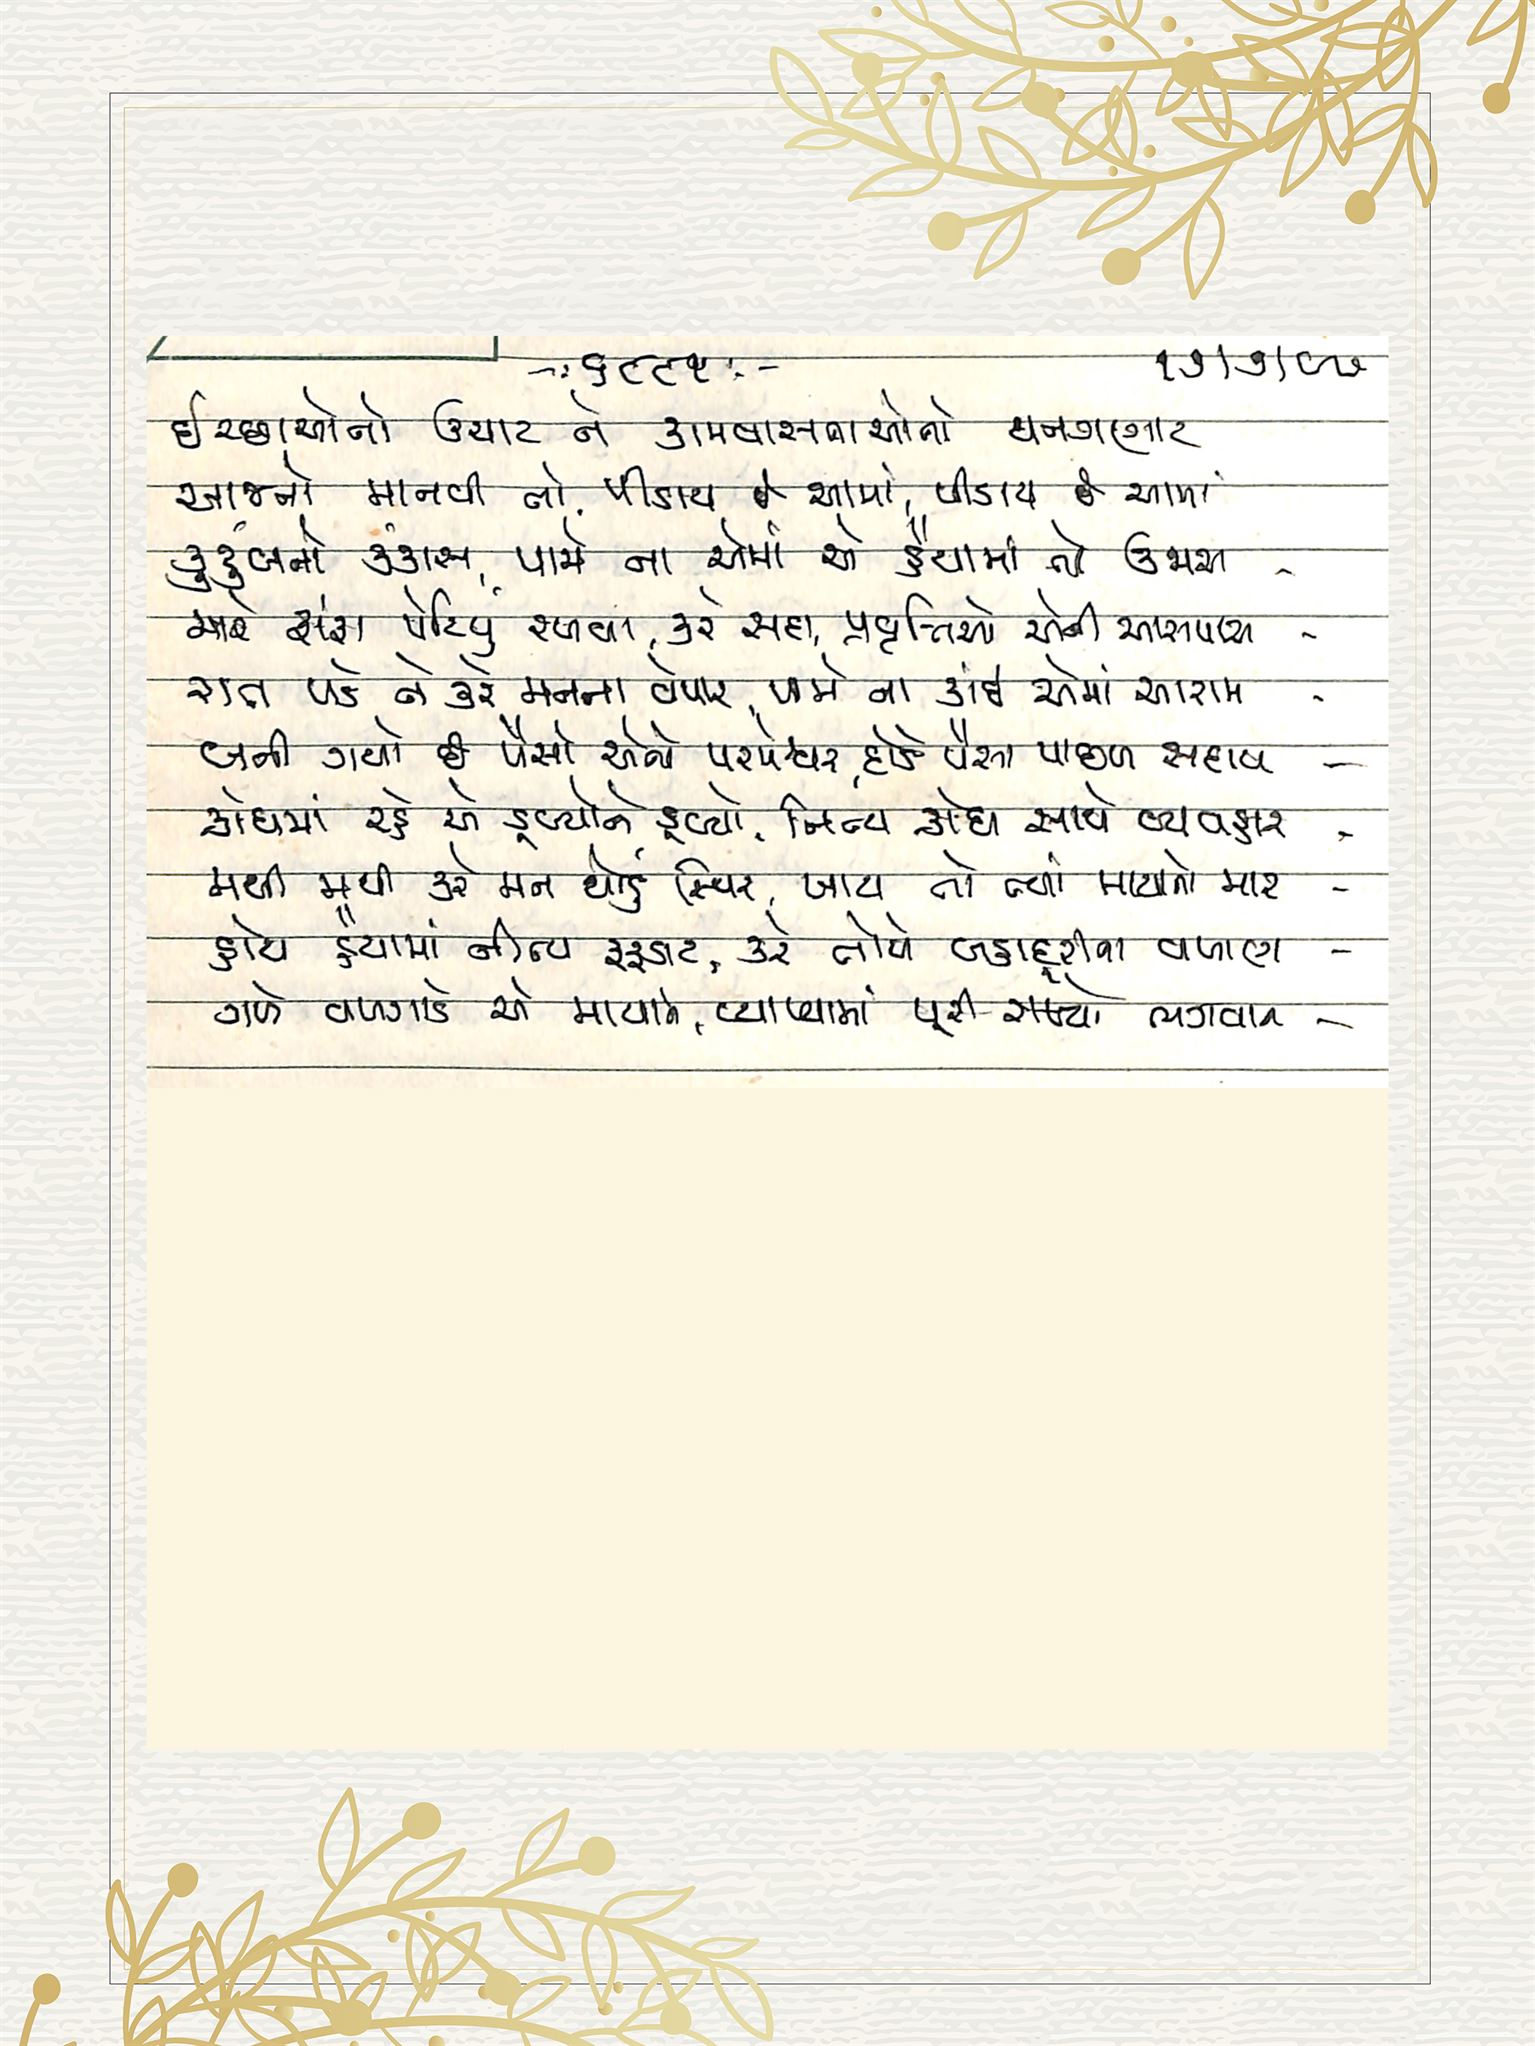 -: ૬૮૮૧ :-
૧૭/૭/૯૭
ઈચ્છાઓનો ઉચાટ ને કામવાસનાઓનો થનગણાટ
આજનો માનવી તો, પીડાય છે આમાં, પીડાય છે આમાં
કુટુંબનો કંકાસ, પામે ના એમાં એ હૈયામાં તો ઉભાશ -
મારે સદા પેટિયું રળવા, કરે સદા, પ્રવૃત્તિઓ એની આસપાસ -
રાત પડે ને કરે મનના વેપાર, પામે ના કાંઈ એમાં આરામ -
બની ગયો છે પૈસો એનો પરમેશ્વર, દોડે પૈસા પાછળ સદાય -
ક્રોધમાં રહે એ ડૂબ્યોને ડૂબ્યો, નિત્ય ક્રોધ સાથે વ્યવહાર -
મથી મથી કરે મન થોડું સ્થિર, ખાય તો ત્યાં માયાનો માર -
હોય હૈયામાં નીત્ય ફફડાટ, કરે તોયે બહાદૂરીના વખાણ -
ગળે વળગાડે એ માયાને, વ્યાખ્યામાં પૂરી રાખ્યો ભગવાન -